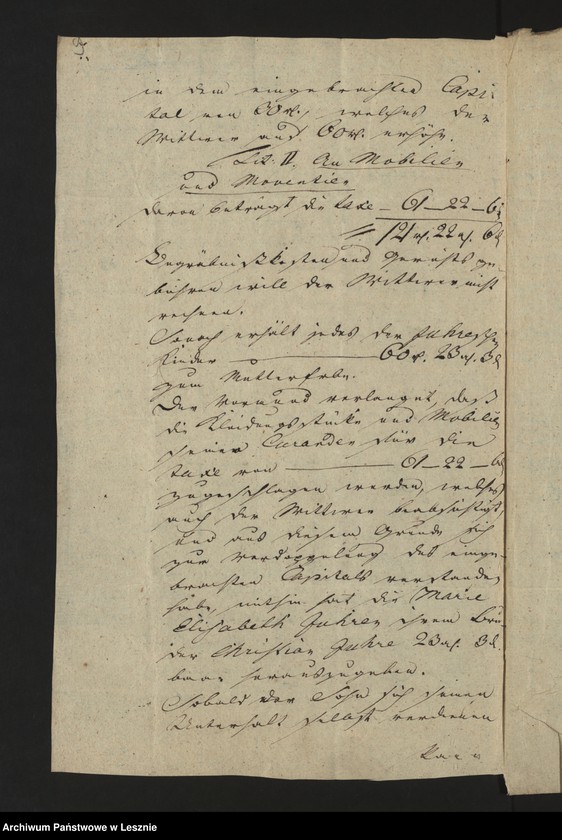 in dem eingebrachten Capi-
tal von 30 rt., welches der
Wittwer auf 60 rt. erhöht.
Lit. II. An Mobilien
und Moventien
davon beträgt die taxe — 61 — 22 — 6
121 rt. 22 gl. 6
Begräbnißkosten und Gerichts ge-
bühren will der Wittwer nicht
rechnen.
Sonach erhält jedes der Juhreschen
Kinder — 60 rt. 23 gl. 3
zum Muttererbe.
Der Vormund verlangt, daß
die Kleidungsstücke und Mobilien
seiner Curanden für die
taxe von — 61 — 22 — 6
zugeschlagen werden, welches
auch der Wittwer beabsichtigt,
und aus diesem Grunde sich
zur Verdoppelung des einge-
brachten Capitals verstanden
habe, mithin hat die Marie
Elisabeth Juhren ihrem Bru-
der Christian Juhre 23 gl. 3
baar herauszugeben.
Sobald der Sohn sich seinen
Unterhalt selbst verdienen
kann
Archiwum Państwowe w Lesznie